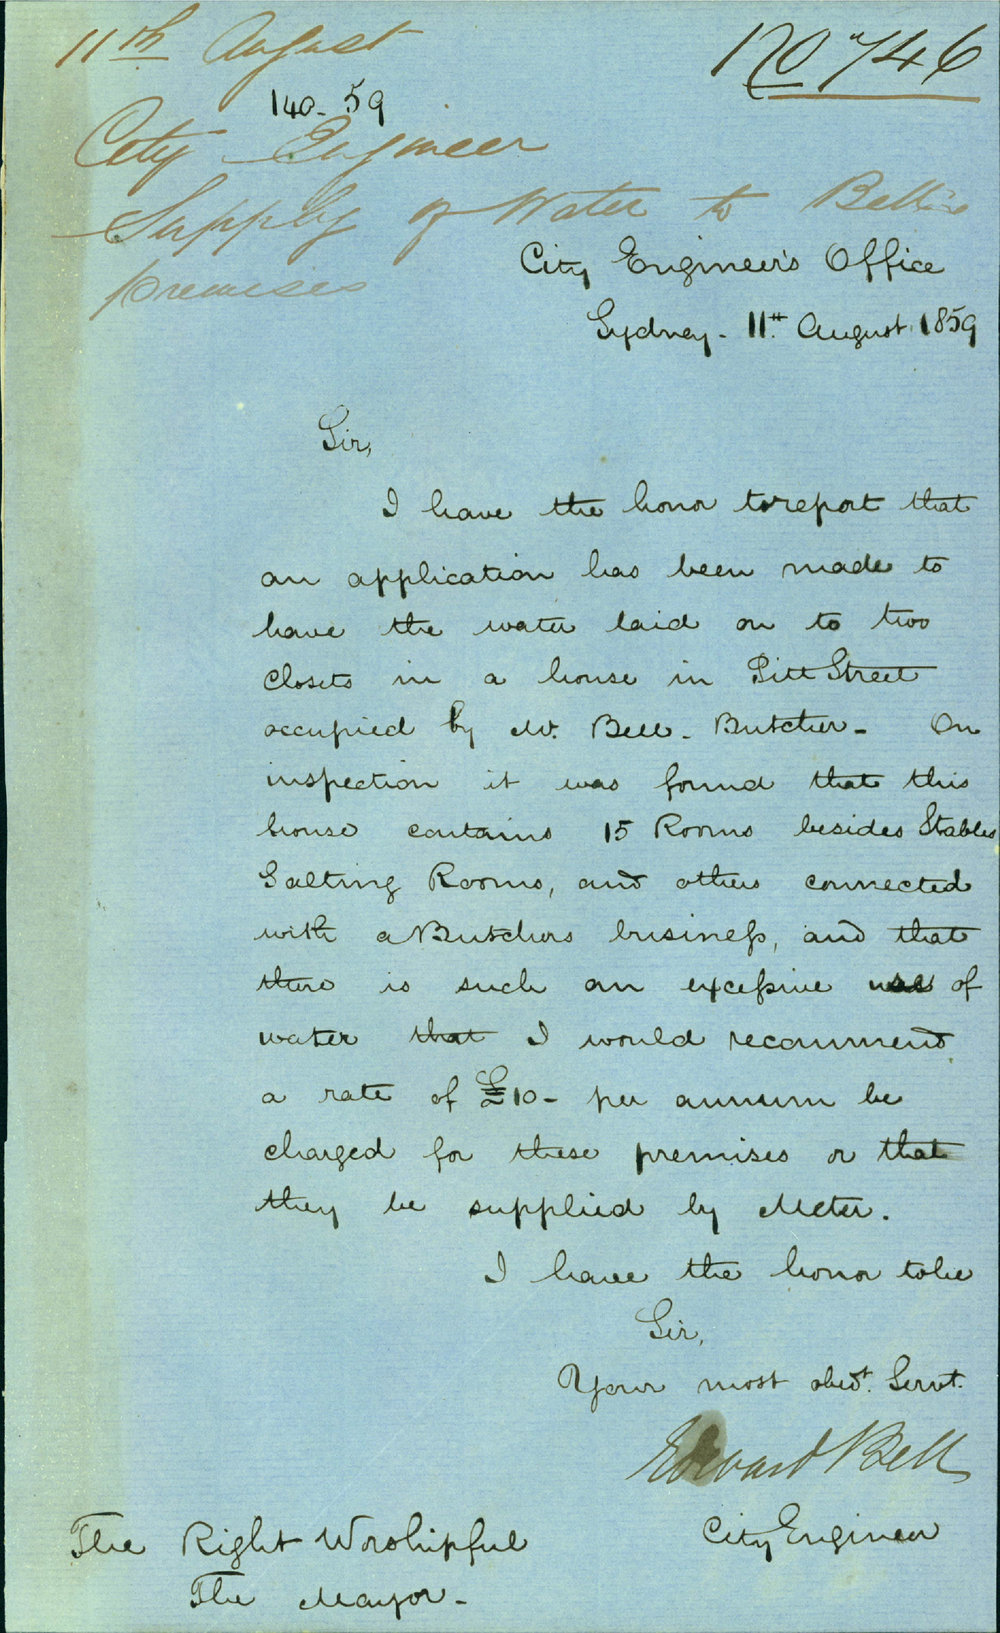 11th August
No 746
140-59
City Engineer
Supply of Water to Bell's
premises
City Engineer's Office
Sydney - 11th August 1859
Sir,
I have the honor to report that
an application has been made to
have the water laid on to two
closets in a house in Pitt Street
occupied by Mr. Bell - Butcher - On
inspection it was found that this
house contains 15 Rooms besides Stables
Salting Rooms, and others connected
with a Butchers business, and that
there is such an excessive use of
water that I would recommend
a rate of £10 - per annum be
charged for these premises or that
they be supplied by Meter.
I have the honor to be
Sir,
Your most obedt. Servt.
Edward Bell
City Engineer
The Right Worshipful
The Mayor -